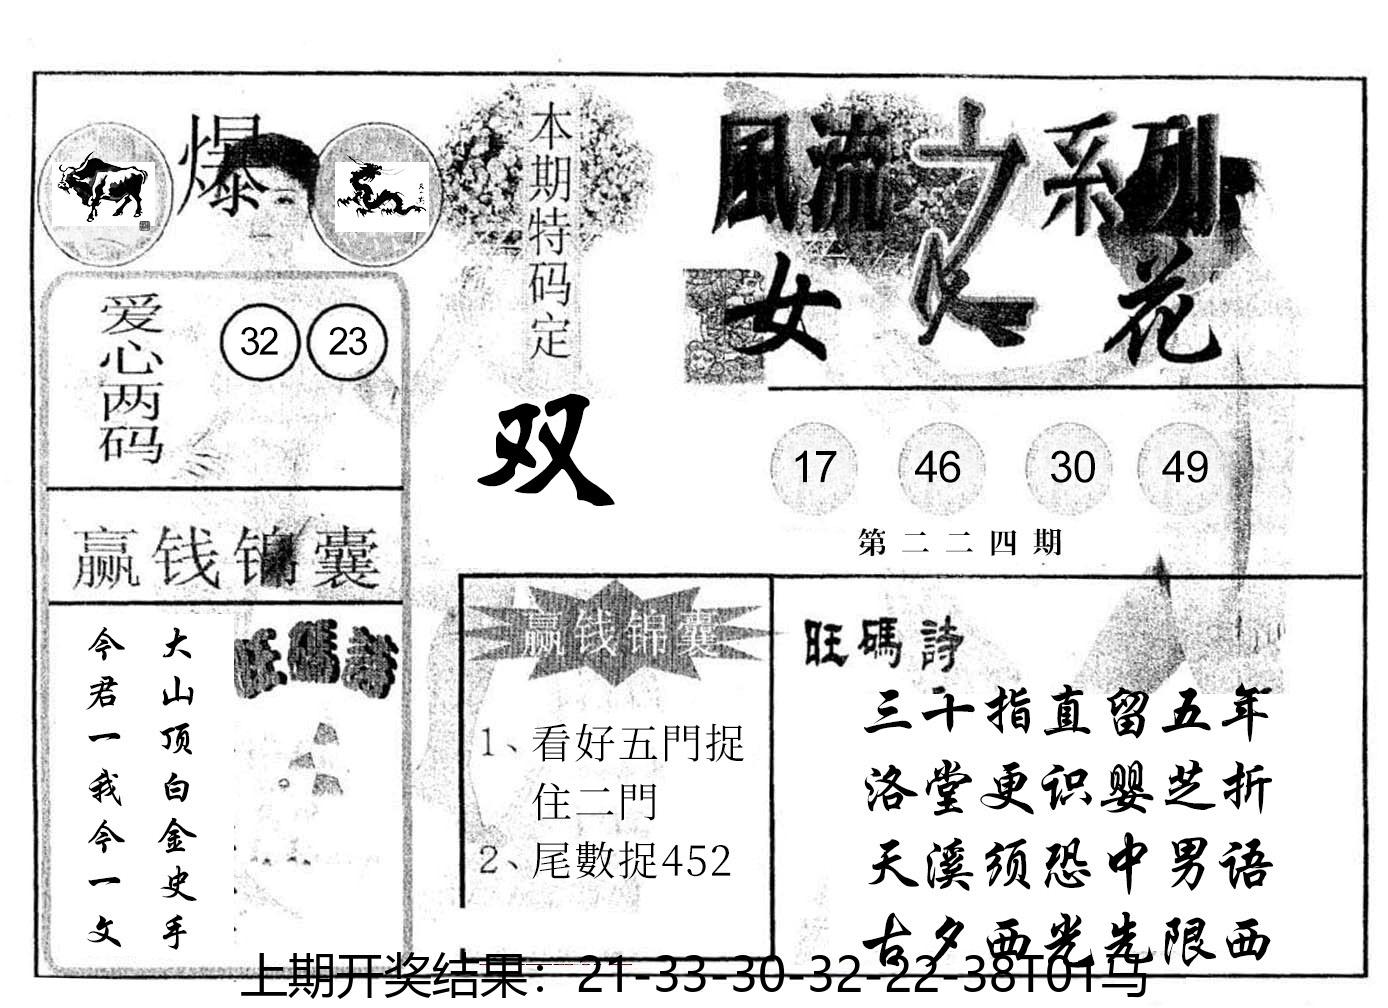 爆
本期特码定
双
風流之系列
女人花
爱心两码
32 23
17 46 30 49
第二二四期
赢钱锦囊
大山顶白金史手
今君一我今一文
旺碼詩
赢钱锦囊
1、看好五門捉
住二門
2、尾數捉452
旺碼詩
三十指直留五年
洛堂更识婴芝折
天溪须恐中男语
古夕西光先限西
上期开奖结果：21-33-30-32-22-38T01马